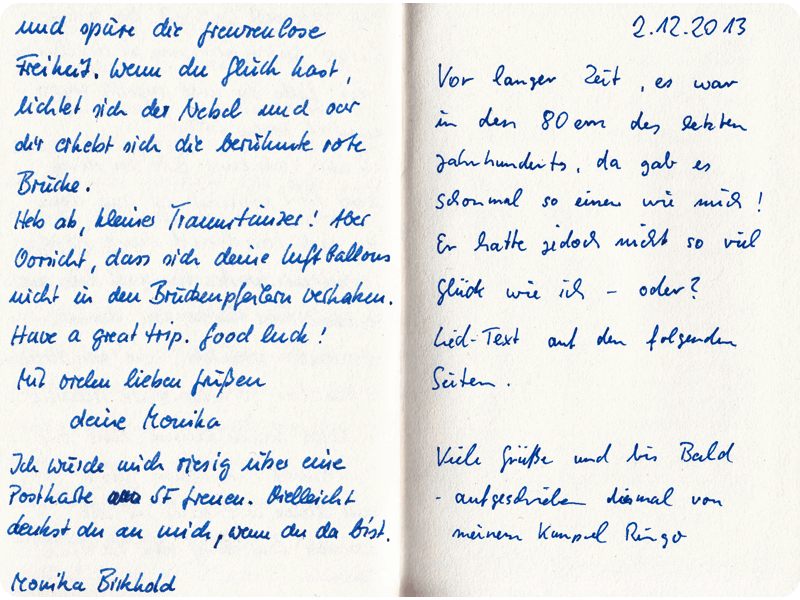 und spüre die grenzenlose
Freiheit. Wenn du Glück hast,
lichtet sich der Nebel und vor
dir erhebt sich die berühmte rote
Brücke.
Heb ab, kleines Traumtänzer! Aber
Vorsicht, dass sich deine Luftballons
nicht in den Brückenpfeilern verhaken.
Have a great trip. Good luck!
Mit vielen lieben Grüßen
deine Monika
Ich würde mich riesig über eine
Postkarte SF freuen. Vielleicht
denkst du an mich, wenn du da bist.
Monika Birkhold
2.12.2013
Vor langer Zeit, es war
in den 80ern des letzten
Jahrhunderts, da gab es
schonmal so einen wie mich!
Er hatte jedoch nicht so viel
Glück wie ich - oder?
Lied-Text auf den folgenden
Seiten.
Viele Grüße und bis Bald
- aufgeschrieben diesmal von
meinem Kumpel Ringo